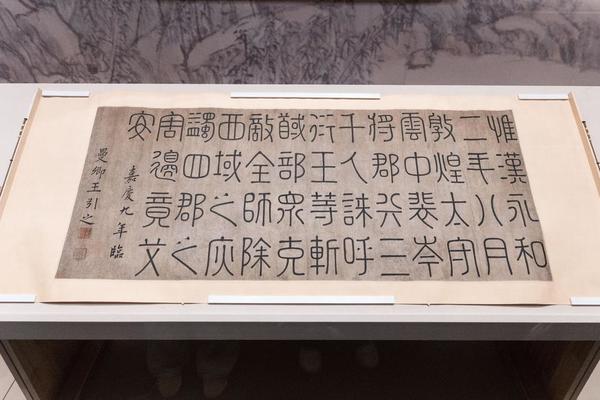 惟漢永和
二年八月
敦煌太守
雲中裴岑
將郡兵三
千人誅呼
衍王等斬
馘部眾克
敵全師除
西域之灾
蠲四郡之
害邊竟艾
安
嘉慶九年臨
曼卿王引之